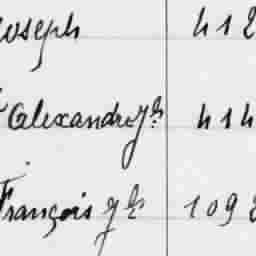 Joseph 412
Alexandre fs 414
François fs 1092